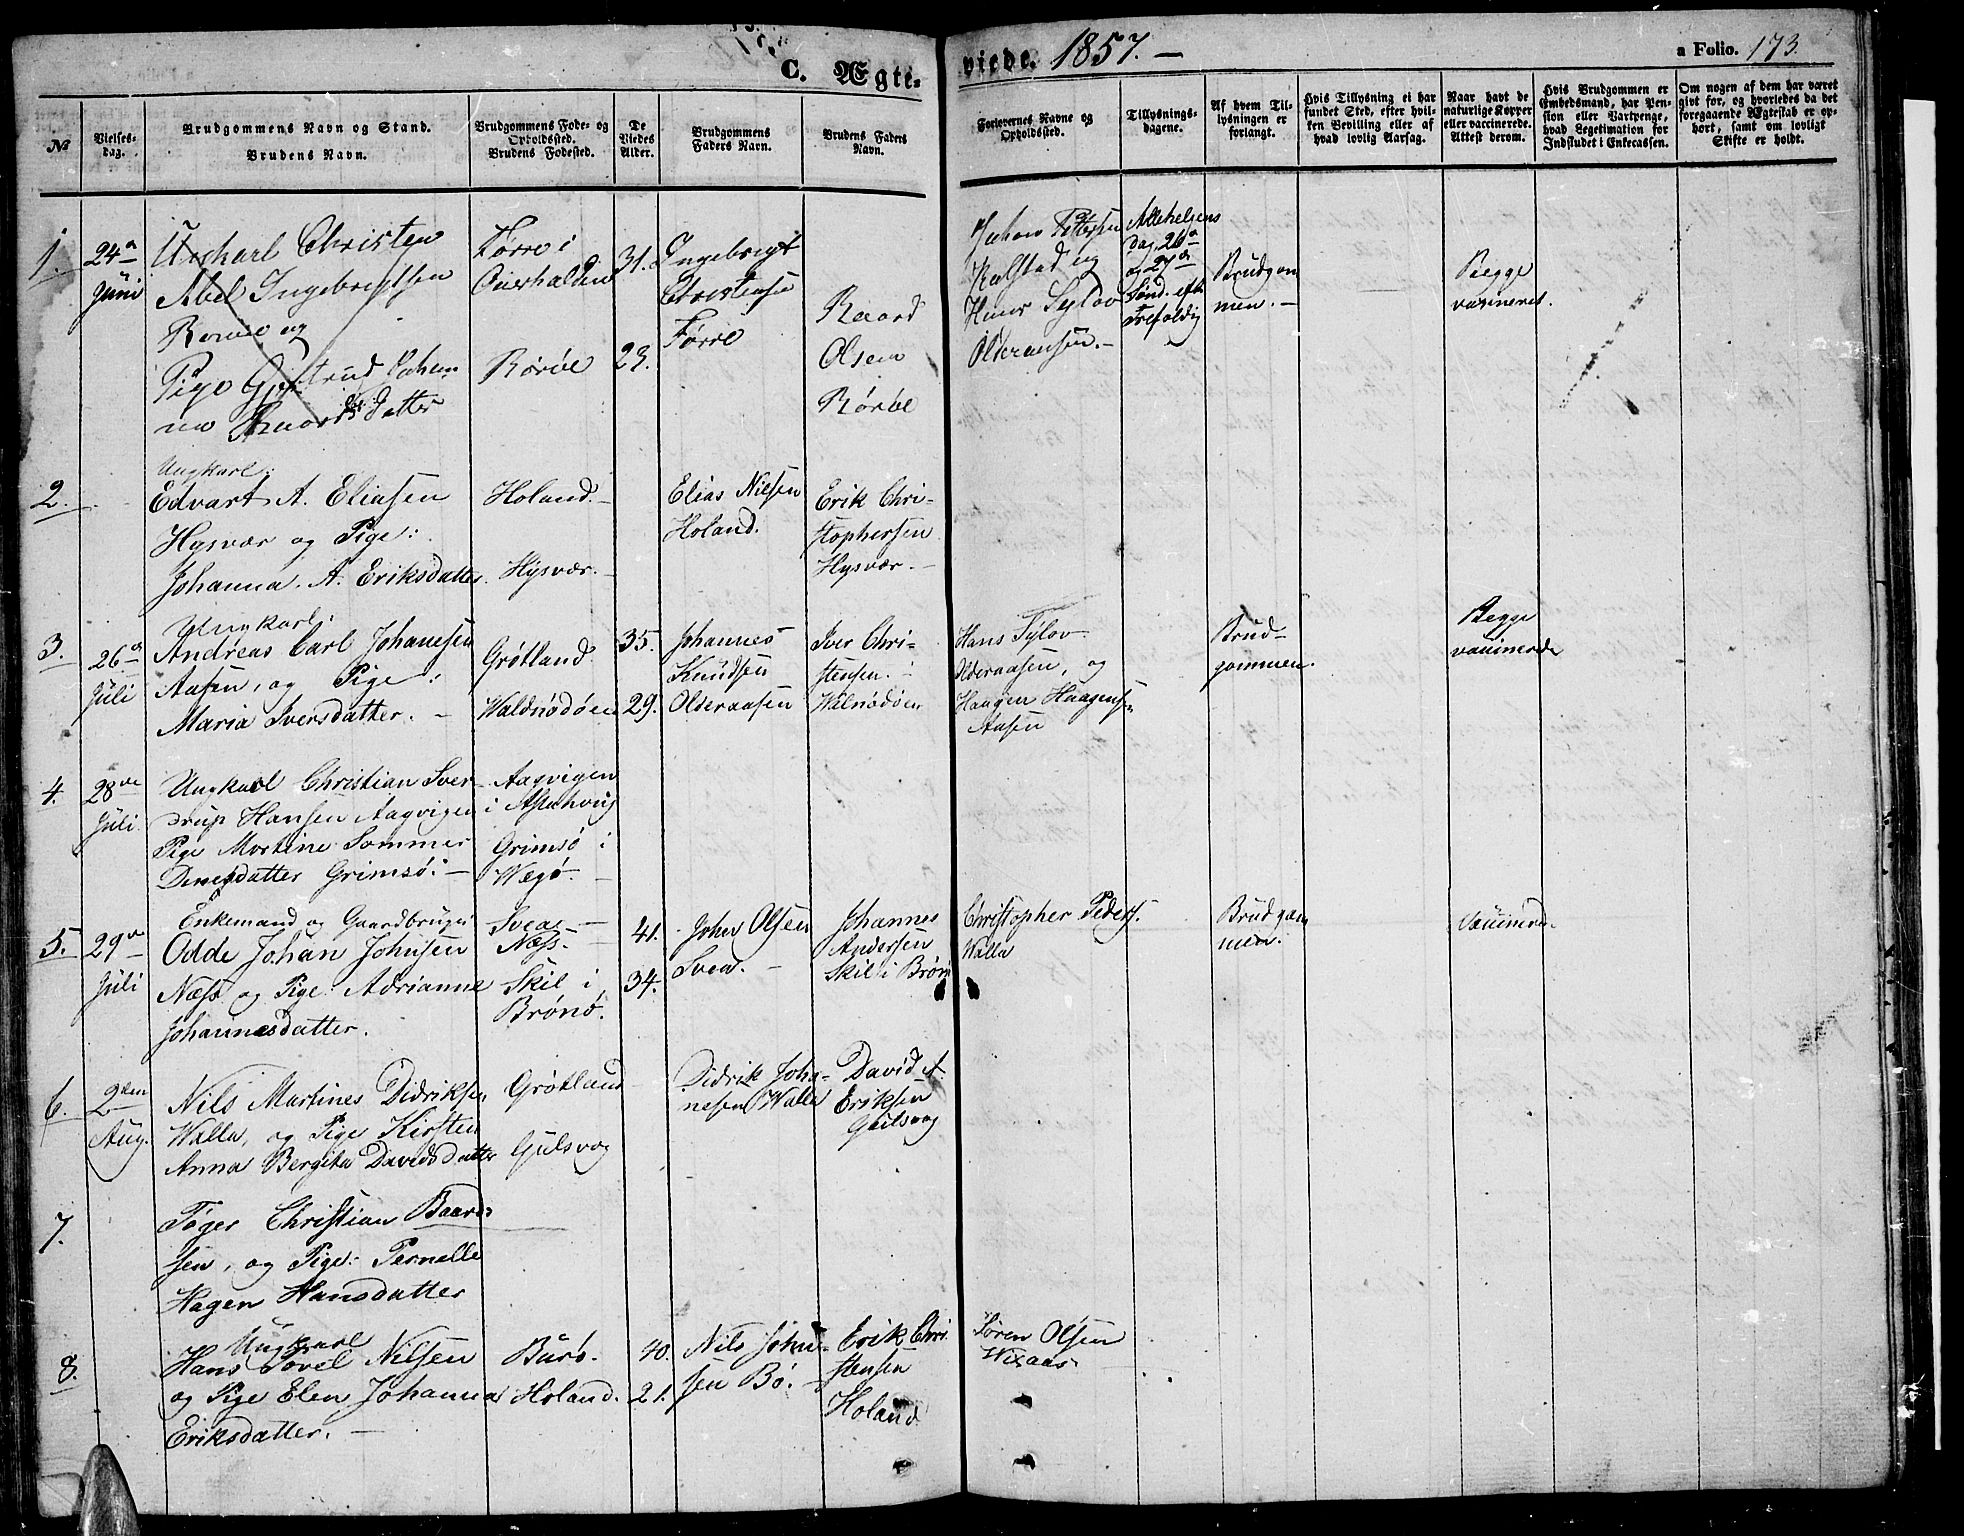 C. Ægteviede. 1857. —
a Folio. 173.
No
Vielses-dag.
Brudgommens Navn og Stand.
Brudens Navn.
Brudgommens Føde- og Opholdssted.
Brudens Fødested.
De Viedes Alder.
Brudgommens Faders Navn.
Brudens Faders Navn.
Forlovernes Navne og Opholdssted.
Tillysnings-dagene.
Af hvem Tillysningen er forlangt.
Hvis Tillysning ei har fundet Sted, efter hvilken Bevilling eller af hvad lovlig Aarsag.
Naar havt de naturlige Kopper eller vaccinerede. Attest derom.
Hvis Brudgommen er Embedsmand, har Pension eller Vartpenge, hvad Legetimation for Indskudet i Enkecassen.
Om nogen af dem har været givt før, og hvorledes da det foregaaende Ægteskab er ophørt, samt om lovligt Skifte er holdt.
1
24de
Juni
Ungkarl Christen
Abel Ingebrigtsen
Rørøe og
Pige Gjertrud
Baards datter
Førre i
Overhalden
Rørøe
31.
23.
Ingebrigt
Christensen
Førre
Baard
Olsen
Rørøe
Johan Pettersen
Kalstad og
Hans Sylov
Olderaasen. —
Allehelgens
Dag, 26de
og 27de
Sønd. eft.
Trefoldig
Brudgom
men. —
Begge
vaxineret.
2.
Ungkarl:
Edvart A. Eliasen
Hysvær og Pige:
Johanna. A. Eriksdatter.
Holand. —
Hysvær. —
Elias Nilsen
Holand.
Erik Chri-
stophersen
Hysvær. —
3.
26de
Juli
Ungkarl:
Andreas Carl Johansen
Aasen, og Pige:
Maria Iversdatter. —
Grøtland.
Waldnødøen
35.
29.
Johannes
Knudsen
Olderaasen
Iver Chri-
stensen. —
Walnødøen
Hans Sylov
Olderaasen, og
Haagen Haagensen
Aasen
Brud-
gommen.
Begge
vaxinerede
4.
28de
Juli.
Ungkarl Christian Sver-
drup Hansen Aagvigen
Pige Martine Sommer
Denesdatter Grimsø. —
Aagvigen
i
Grimsø i
Wegø. —
5.
29de
Juli
Enkemand og Gaardbruger
Odde Johan Johnsen
Næss og Pige: Adrianne
Johannesdatter.
Svea —
Næss. —
Skil i
Brønø.
41.
34.
John Olsen
Svea. —
Johannes
Andersen
Skil i Brønø
Christopher Peders.
Walla
Brudgom
men.
vaxinered.
6.
2den
Aug.
Nils Martines Didriksen
Walla, og Pige Kirsten
Anna Bergita Davidsdatter
Grøtland
Gulsvog
Didrik Joha-
nesen Walla
David A.
Eriksen
Gulsvog
7.
Tøger Christian Baard-
sen, og Pige: Pernelle
Hagen Hansdatter
8.
Ungkarl
Hans Povel Nilsen
og Pige Elen Johanna
Eriksdatter. —
Burø.
Holand.
40.
21.
Nils John-
sen Bø. —
Erik Chri-
stensen
Holand
Søren Olsen